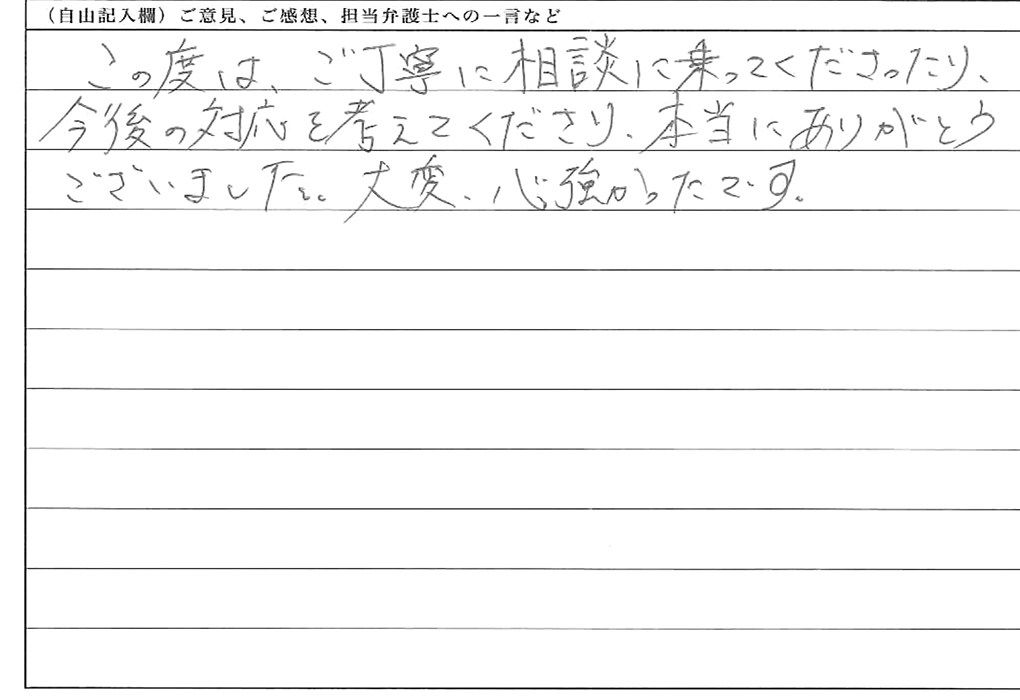 （自由記入欄）ご意見、ご感想、担当弁護士への一言など
この度は、ご丁寧に相談に乗ってくださったり、
今後の対応を考えてくださり、本当にありがとう
ございました。大変、心強かったです。